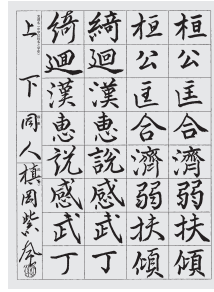 桓公匡合濟弱扶傾
桓公匡合濟弱扶傾
綺迴漢恵說感武丁
綺迴漢恵說感武丁
上
下
同人